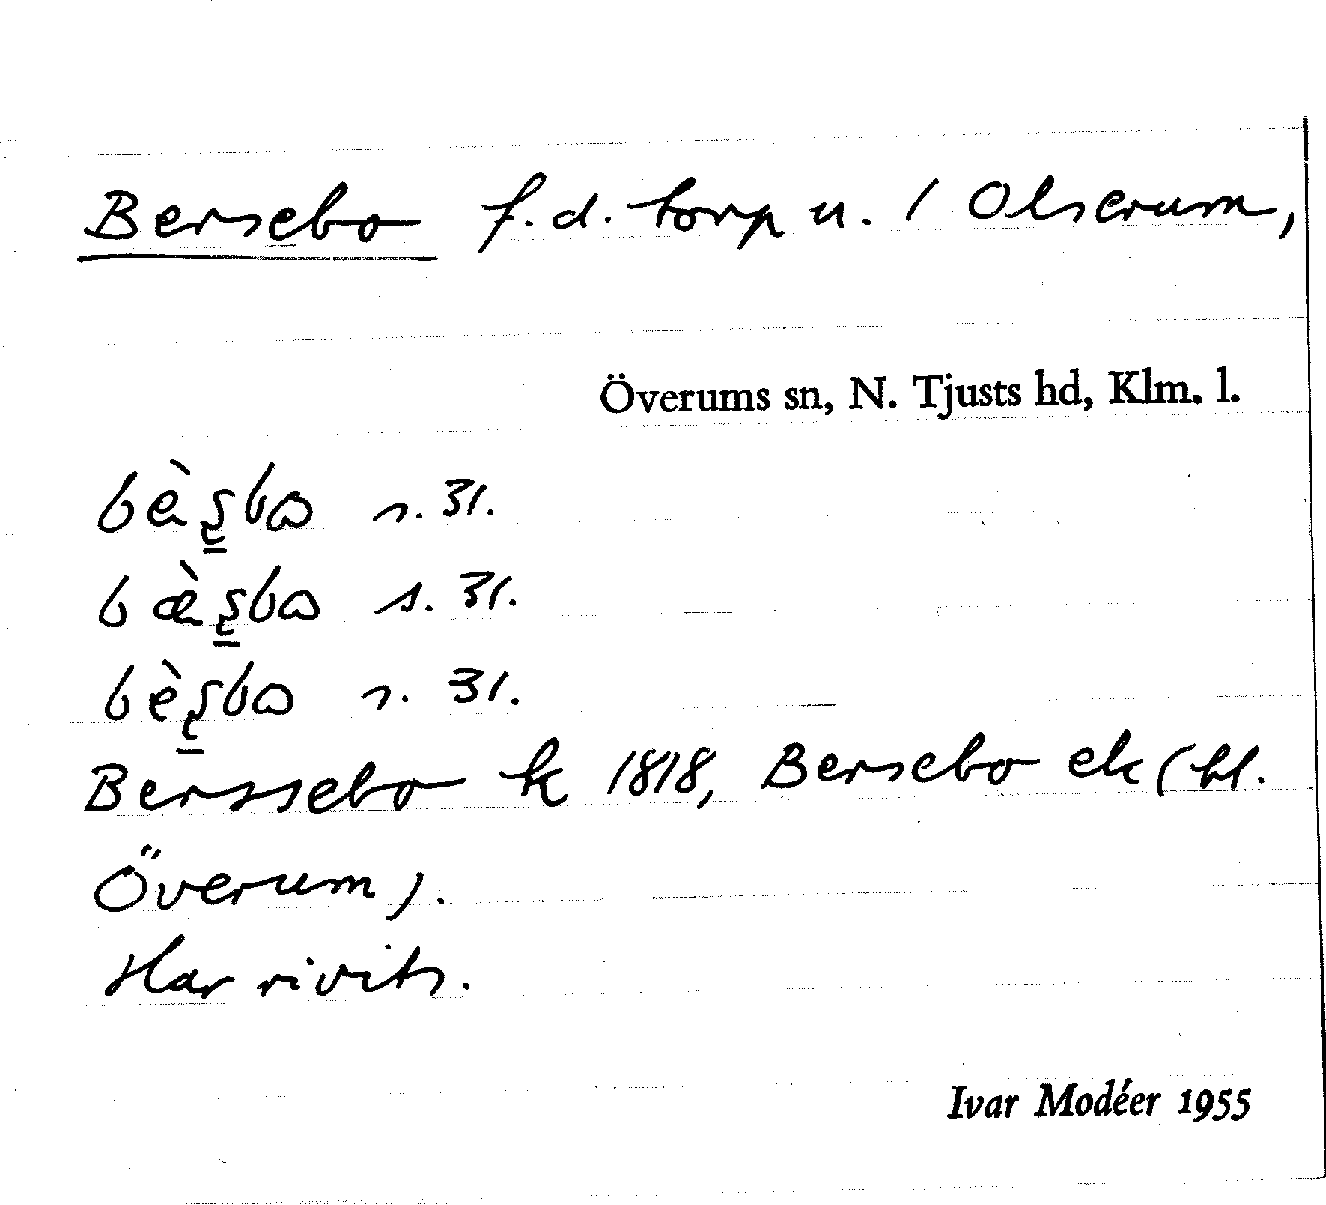 Bersebo f.d. torp u. / Olserum,
Överums sn, N. Tjusts hd, Klm. l.
s. 31.
s. 31.
s. 31.
Berssebo k 1818, Bersebo ek (bl.
Överum).
Har rivits.
Ivar Modéer 1955